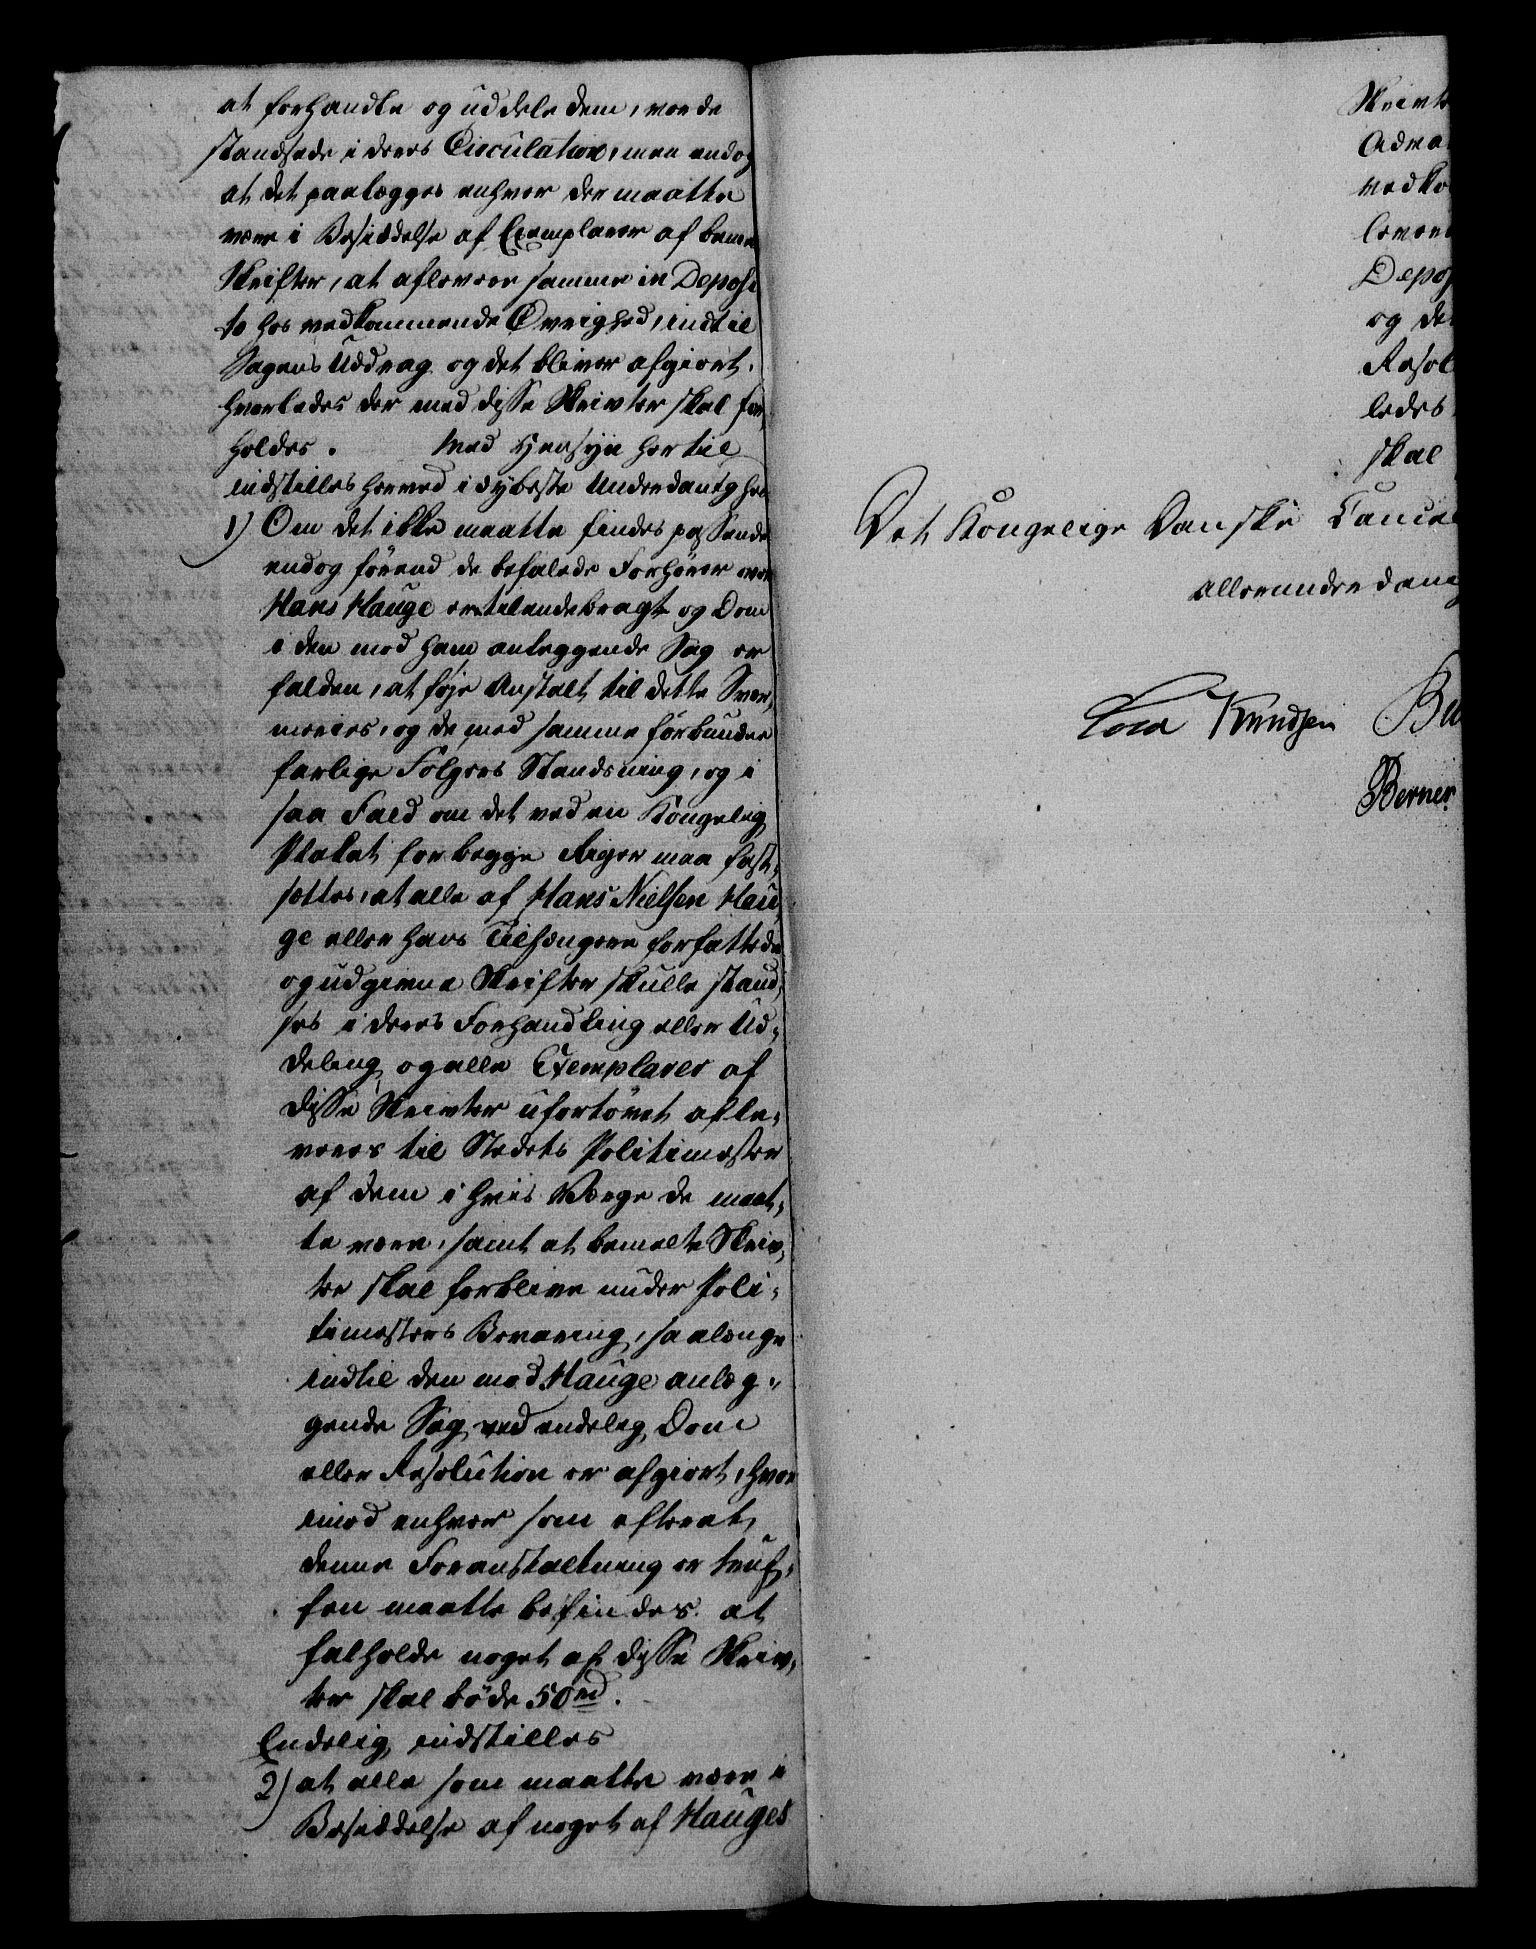 at forhandle og uddele dem, vorde
standsede i deres Circulation, men endog
at det paalægges enhver der maatte
være i Besiddelse af Exemplarer af bem
Skrifter, at aflevere samme in Deposi
to hos vedkommende Øvrighed, indtil
Sagens Uddrag og det bliver afgiort,
hvorledes der med disse Skrivter skal for,
holdes. Med Hensyn hertil
indstilles herved i dybeste Underdanighe
1) Om det ikke maatte findes passende
endog førend de befalede Forhører over
Hans Hauge ere tilendebragt og Dom
i den mod ham anlæggende Sag er
falden, at føje Anstalt til dette Svær,
meries, og de med samme forbundne
farlige Følgers Standsning, og i
saa Fald om det ved en Kongelig
Plakat for begge Riger maa fast,
sættes, at alle af Hans Nielsen Hau,
ge eller hans Tilhængere forfattede
og udgivne Skrifter skulle stand,
ses i deres Forhandling eller Ud,
deling, og alle Exemplarer af
disse Skrivter ufortøvet afle,
veres til Stedets Politimester
af dem i hvis Værge de maat,
te være, samt at bemelte Skriv,
ter skal forblive under Poli,
timesters Bevaring, saalænge
indtil den mod Hauge anlæg,
gende Sag ved endelig Dom
eller Resolution er afgiort, hvor
imod enhver som efterat
denne Foranstaltning er truf,
fen maatte befindes at
falholde noget af disse Skriv,
ter skal bøde 50 rd.
Endelig indstilles
2) at alle som maatte være i
Besiddelse af noget af Hauges
Skrivte
Advar
vedko
levere
Depos
og de
Resol
ledes
skal
Det Kongelige Danske Cancel
allerunderdanig
Knudsen
Berner